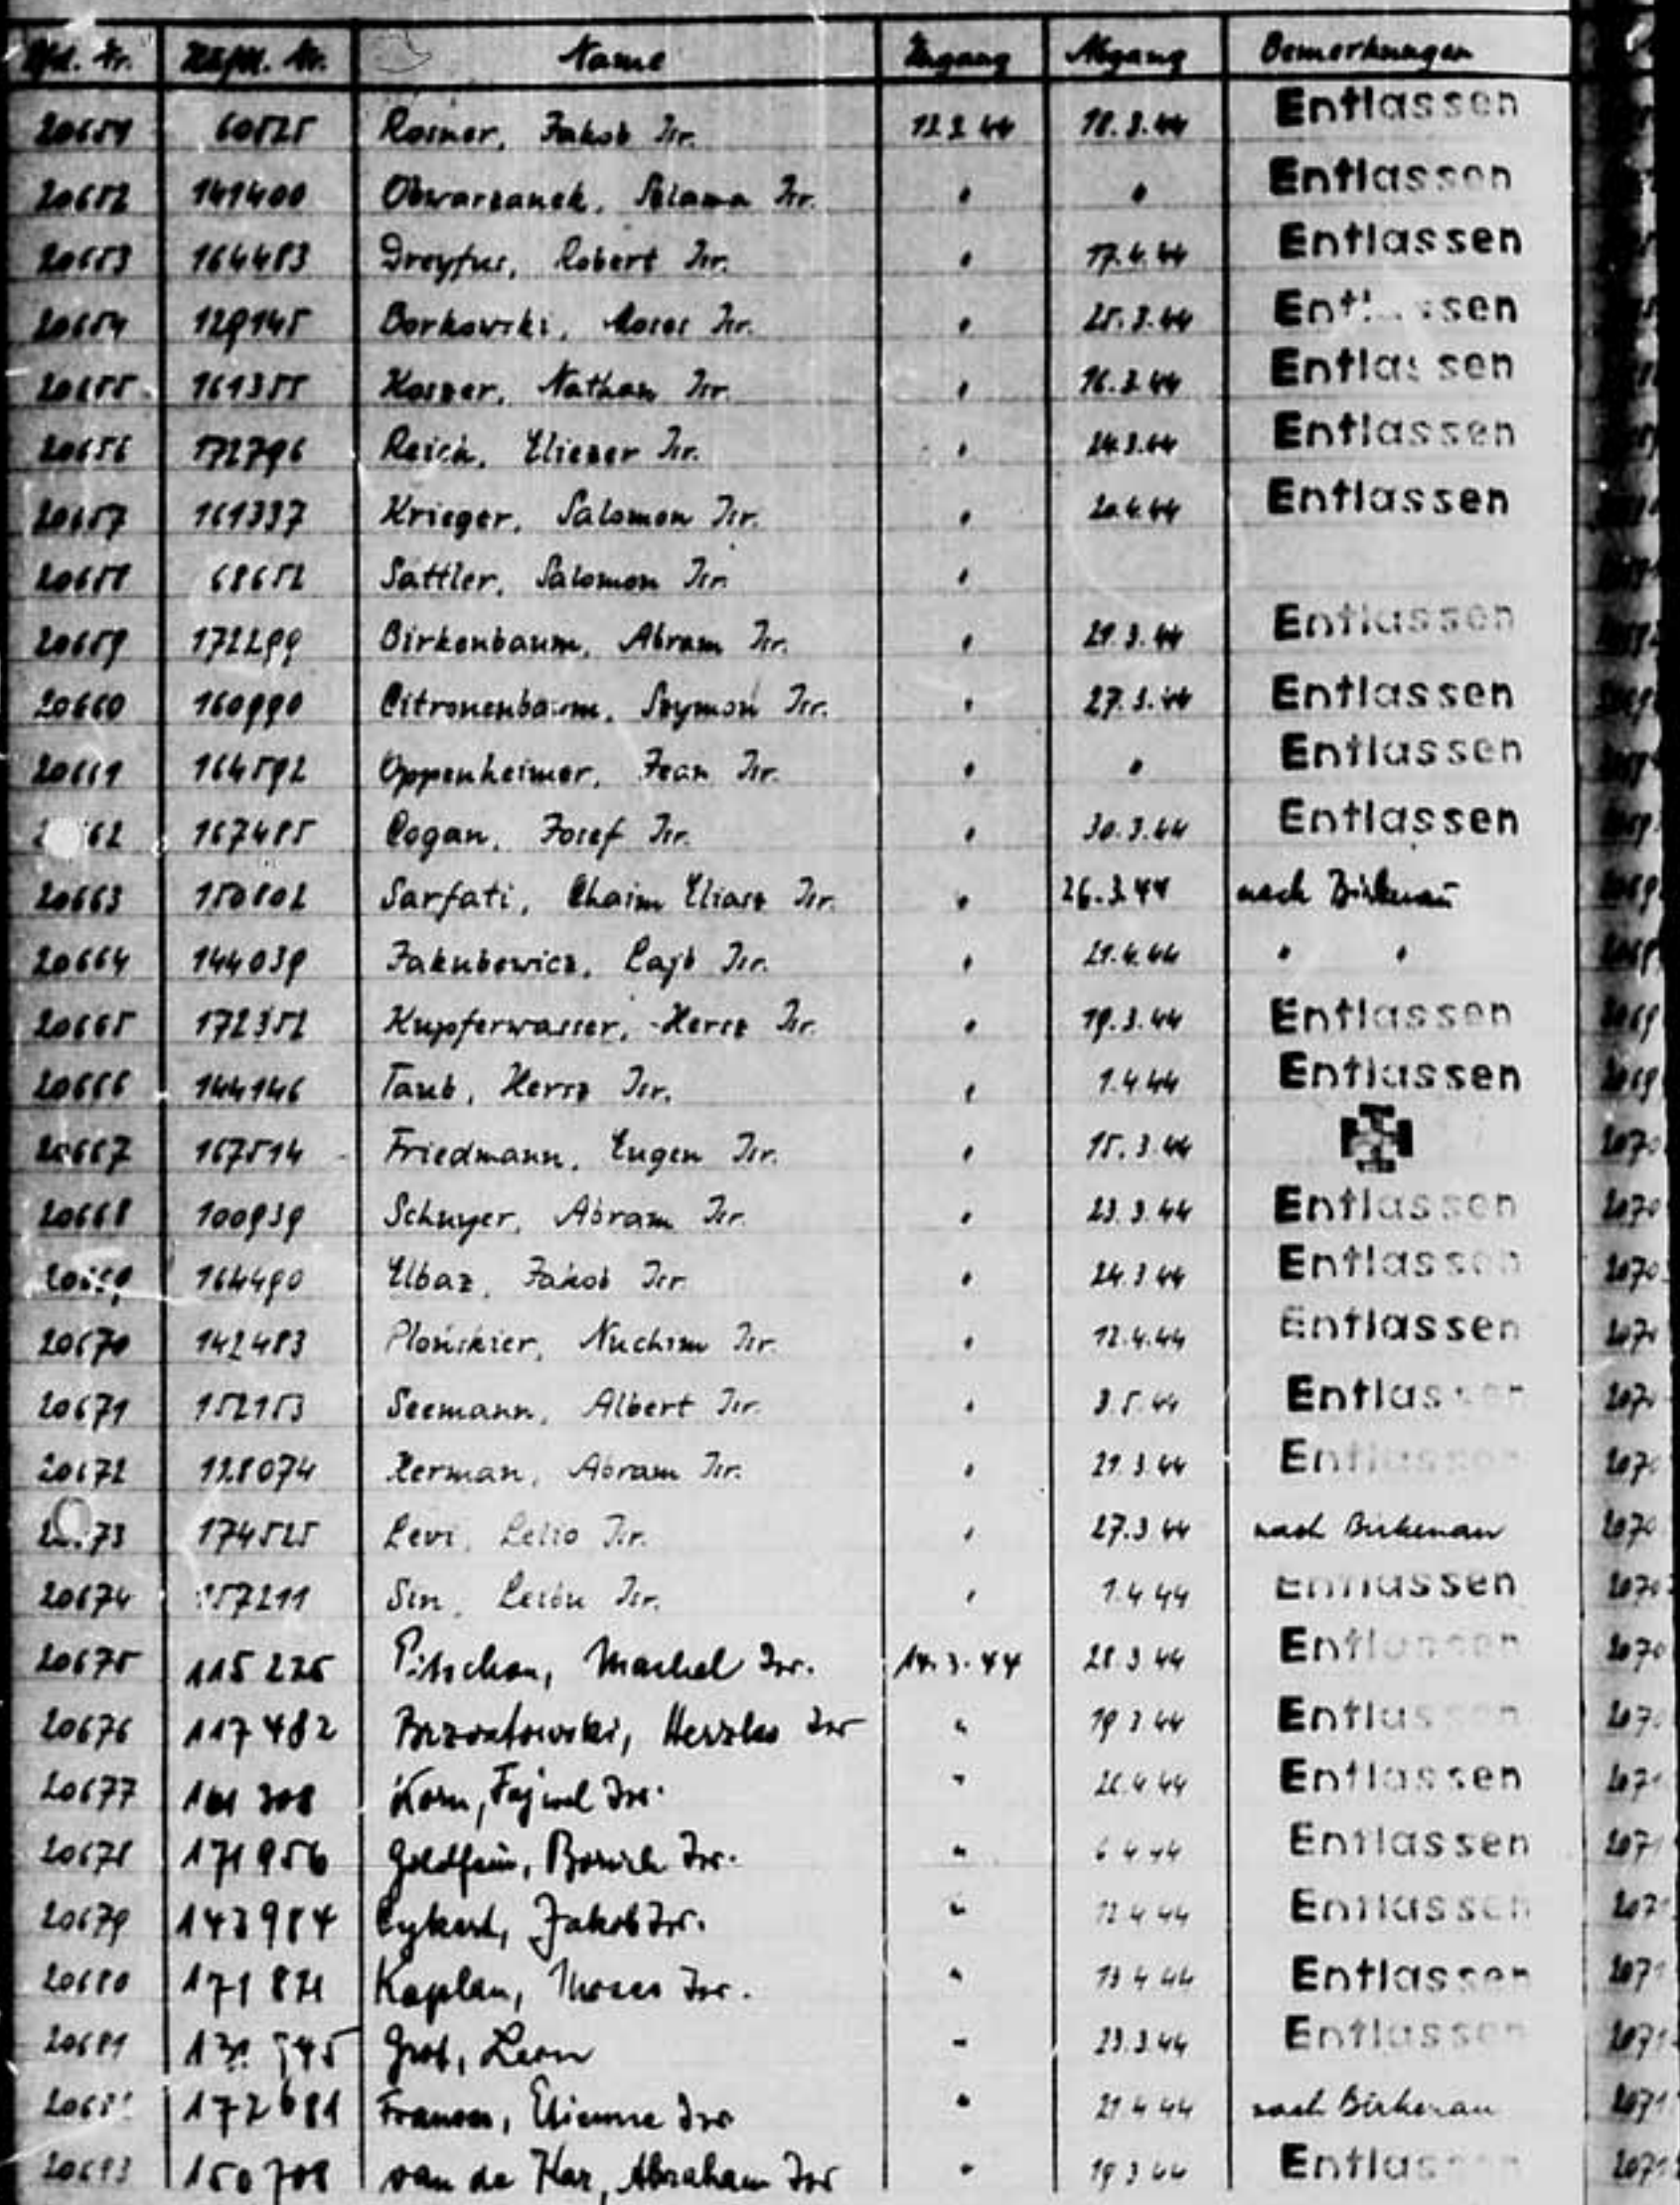 Lfd. Nr. Häftl. Nr. Name Zugang Abgang Bemerkungen
20651 60525 Rosner, Jakob Isr. 12.3.44 18.3.44 Entlassen
20652 141400 Obwarzanek, Szlama Isr. " " Entlassen
20653 164483 Dreyfus, Robert Isr. " 17.4.44 Entlassen
20654 129145 Borkowski, Moses Isr. " 25.3.44 Entlassen
20655 161355 Koszer, Nathan Isr. " 16.3.44 Entlassen
20656 172796 Reich, Eliezer Isr. " 24.3.44 Entlassen
20657 161337 Krieger, Salomon Isr. " 20.4.44 Entlassen
20658 68652 Sattler, Salomon Isr. "
20659 172299 Birkenbaum, Abram Isr. " 21.3.44 Entlassen
20660 160990 Citronenbaum, Szymon Isr. " 27.3.44 Entlassen
20661 164592 Oppenheimer, Jean Isr. " " Entlassen
62 167485 Cogan, Josef Isr. " 30.3.44 Entlassen
20663 150802 Sarfati, Chaim Eliasz Isr. " 26.3.44 nach Birkenau
20664 144039 Jakubowicz, Lajb Isr. " 21.4.44 " "
20665 172352 Kupferwasser, Hersz Isr. " 19.3.44 Entlassen
20666 144146 Taub, Hersz Isr. " 1.4.44 Entlassen
20667 167514 Friedmann, Eugen Isr. " 15.3.44
20668 100939 Schnyer, Abram Isr. " 23.3.44 Entlassen
20669 164490 Elbaz, Jakob Isr. " 24.3.44 Entlassen
20670 142483 Płońskier, Nuchim Isr. " 12.4.44 Entlassen
20671 152153 Seemann, Albert Isr. " 3.5.44 Entlassen
20672 128074 Herman, Abram Isr. " 21.3.44 Entlassen
73 174525 Levi, Lelio Isr. " 27.3.44 nach Birkenau
20674 157211 Sin, Isr. " 1.4.44 Entlassen
20675 115226 Machel Isr. 14.3.44 28.3.44 Entlassen
20676 117482 Isr " 19.3.44 Entlassen
20677 161308 Korn, Fajwel Isr. " 4.44 Entlassen
20678 171956 Goldfein, Isr. " 6.4.44 Entlassen
20679 143984 Cykert, Jakob Isr. " 12.4.44 Entlassen
20680 171871 Kaplan, Moses Isr. " 13.4.44 Entlassen
20681 Grot, Leon " 23.3.44 Entlassen
172681 Etienne Isr " 21.4.44 nach Birkenau
20683 150708 van de Kar, Abraham Isr " 19.3.44 Entlassen